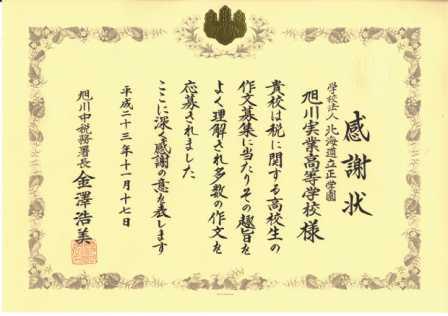 感謝状
学校法人 北海道立正学園
旭川実業高等学校 様
貴校は税に関する高校生の
作文募集に当たりその趣旨を
よく理解され多数の作文を
応募されました
ここに深く感謝の意を表します
平成二十三年十一月十七日
旭川中税務署長 金澤浩美